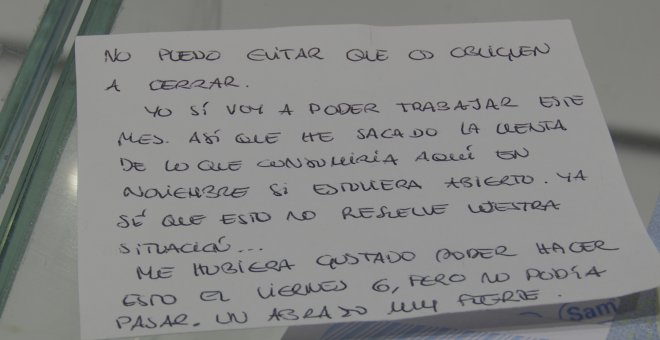 NO PUEDO EVITAR QUE OS OBLIGUEN
A CERRAR.
YO SÍ VOY A PODER TRABAJAR ESTE
MES. ASÍ QUE HE SACADO LA CUENTA
DE LO QUE CONSUMIRIA AQUÍ EN
NOVIEMBRE SI ESTUVIERA ABIERTO. YA
SÉ QUE ESTO NO RESUELVE VUESTRA
SITUACIÓN...
ME HUBIERA GUSTADO PODER HACER
ESTO EL VIERNES 6, PERO NO PODÍA
PASAR. UN ABRAZO MUY FUERTE.
(Sam